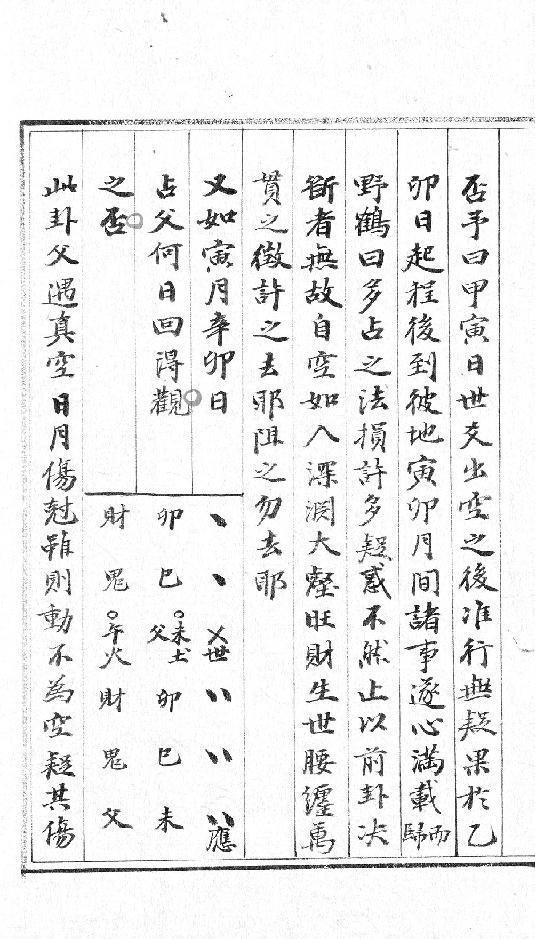 否予曰甲寅日世爻出空之後准行無疑果於乙
卯日起程後到彼地寅卯月間諸事遂心滿載而歸
野鶴曰多占之法損許多疑惑不然止以前卦决
斷者無故自空如入深淵大壑旺財生世腰纏萬
貫之徵許之去耶阻之勿去耶
又如寅月辛卯日
占父何日回得觀
之否
、 、 乂世 〃 〃 〃應
卯 巳 。未土父 卯 巳 未
財 鬼 。午火 財 鬼 父
此卦父遇真空日月傷尅雖則動不為空疑其傷